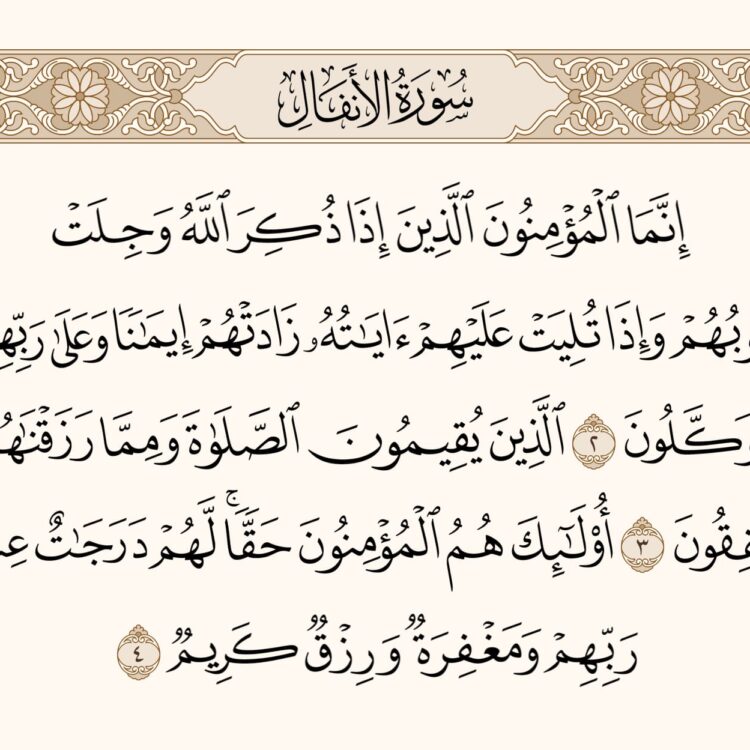 سُورَةُ الأَنفَالِ
إِنَّمَا ٱلْمُؤْمِنُونَ ٱلَّذِينَ إِذَا ذُكِرَ ٱللَّهُ وَجِلَتْ
وبُهُمْ وَإِذَا تُلِيَتْ عَلَيْهِمْ ءَايَٰتُهُۥ زَادَتْهُمْ إِيمَٰنًا وَعَلَىٰ رَبِّهِ
وَكَّلُونَ ٢ ٱلَّذِينَ يُقِيمُونَ ٱلصَّلَوٰةَ وَمِمَّا رَزَقْنَٰهُ
فِقُونَ ٣ أُو۟لَٰٓئِكَ هُمُ ٱلْمُؤْمِنُونَ حَقًّاۚ لَّهُمْ دَرَجَٰتٌ عِن
رَبِّهِمْ وَمَغْفِرَةٌ وَرِزْقٌ كَرِيمٌ ٤